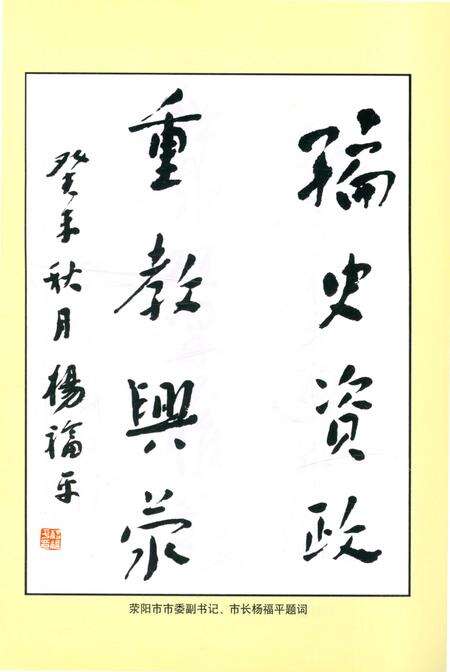 編史資政
重教興荥
癸未秋月 楊福平
荥阳市市委副书记、市长杨福平题词